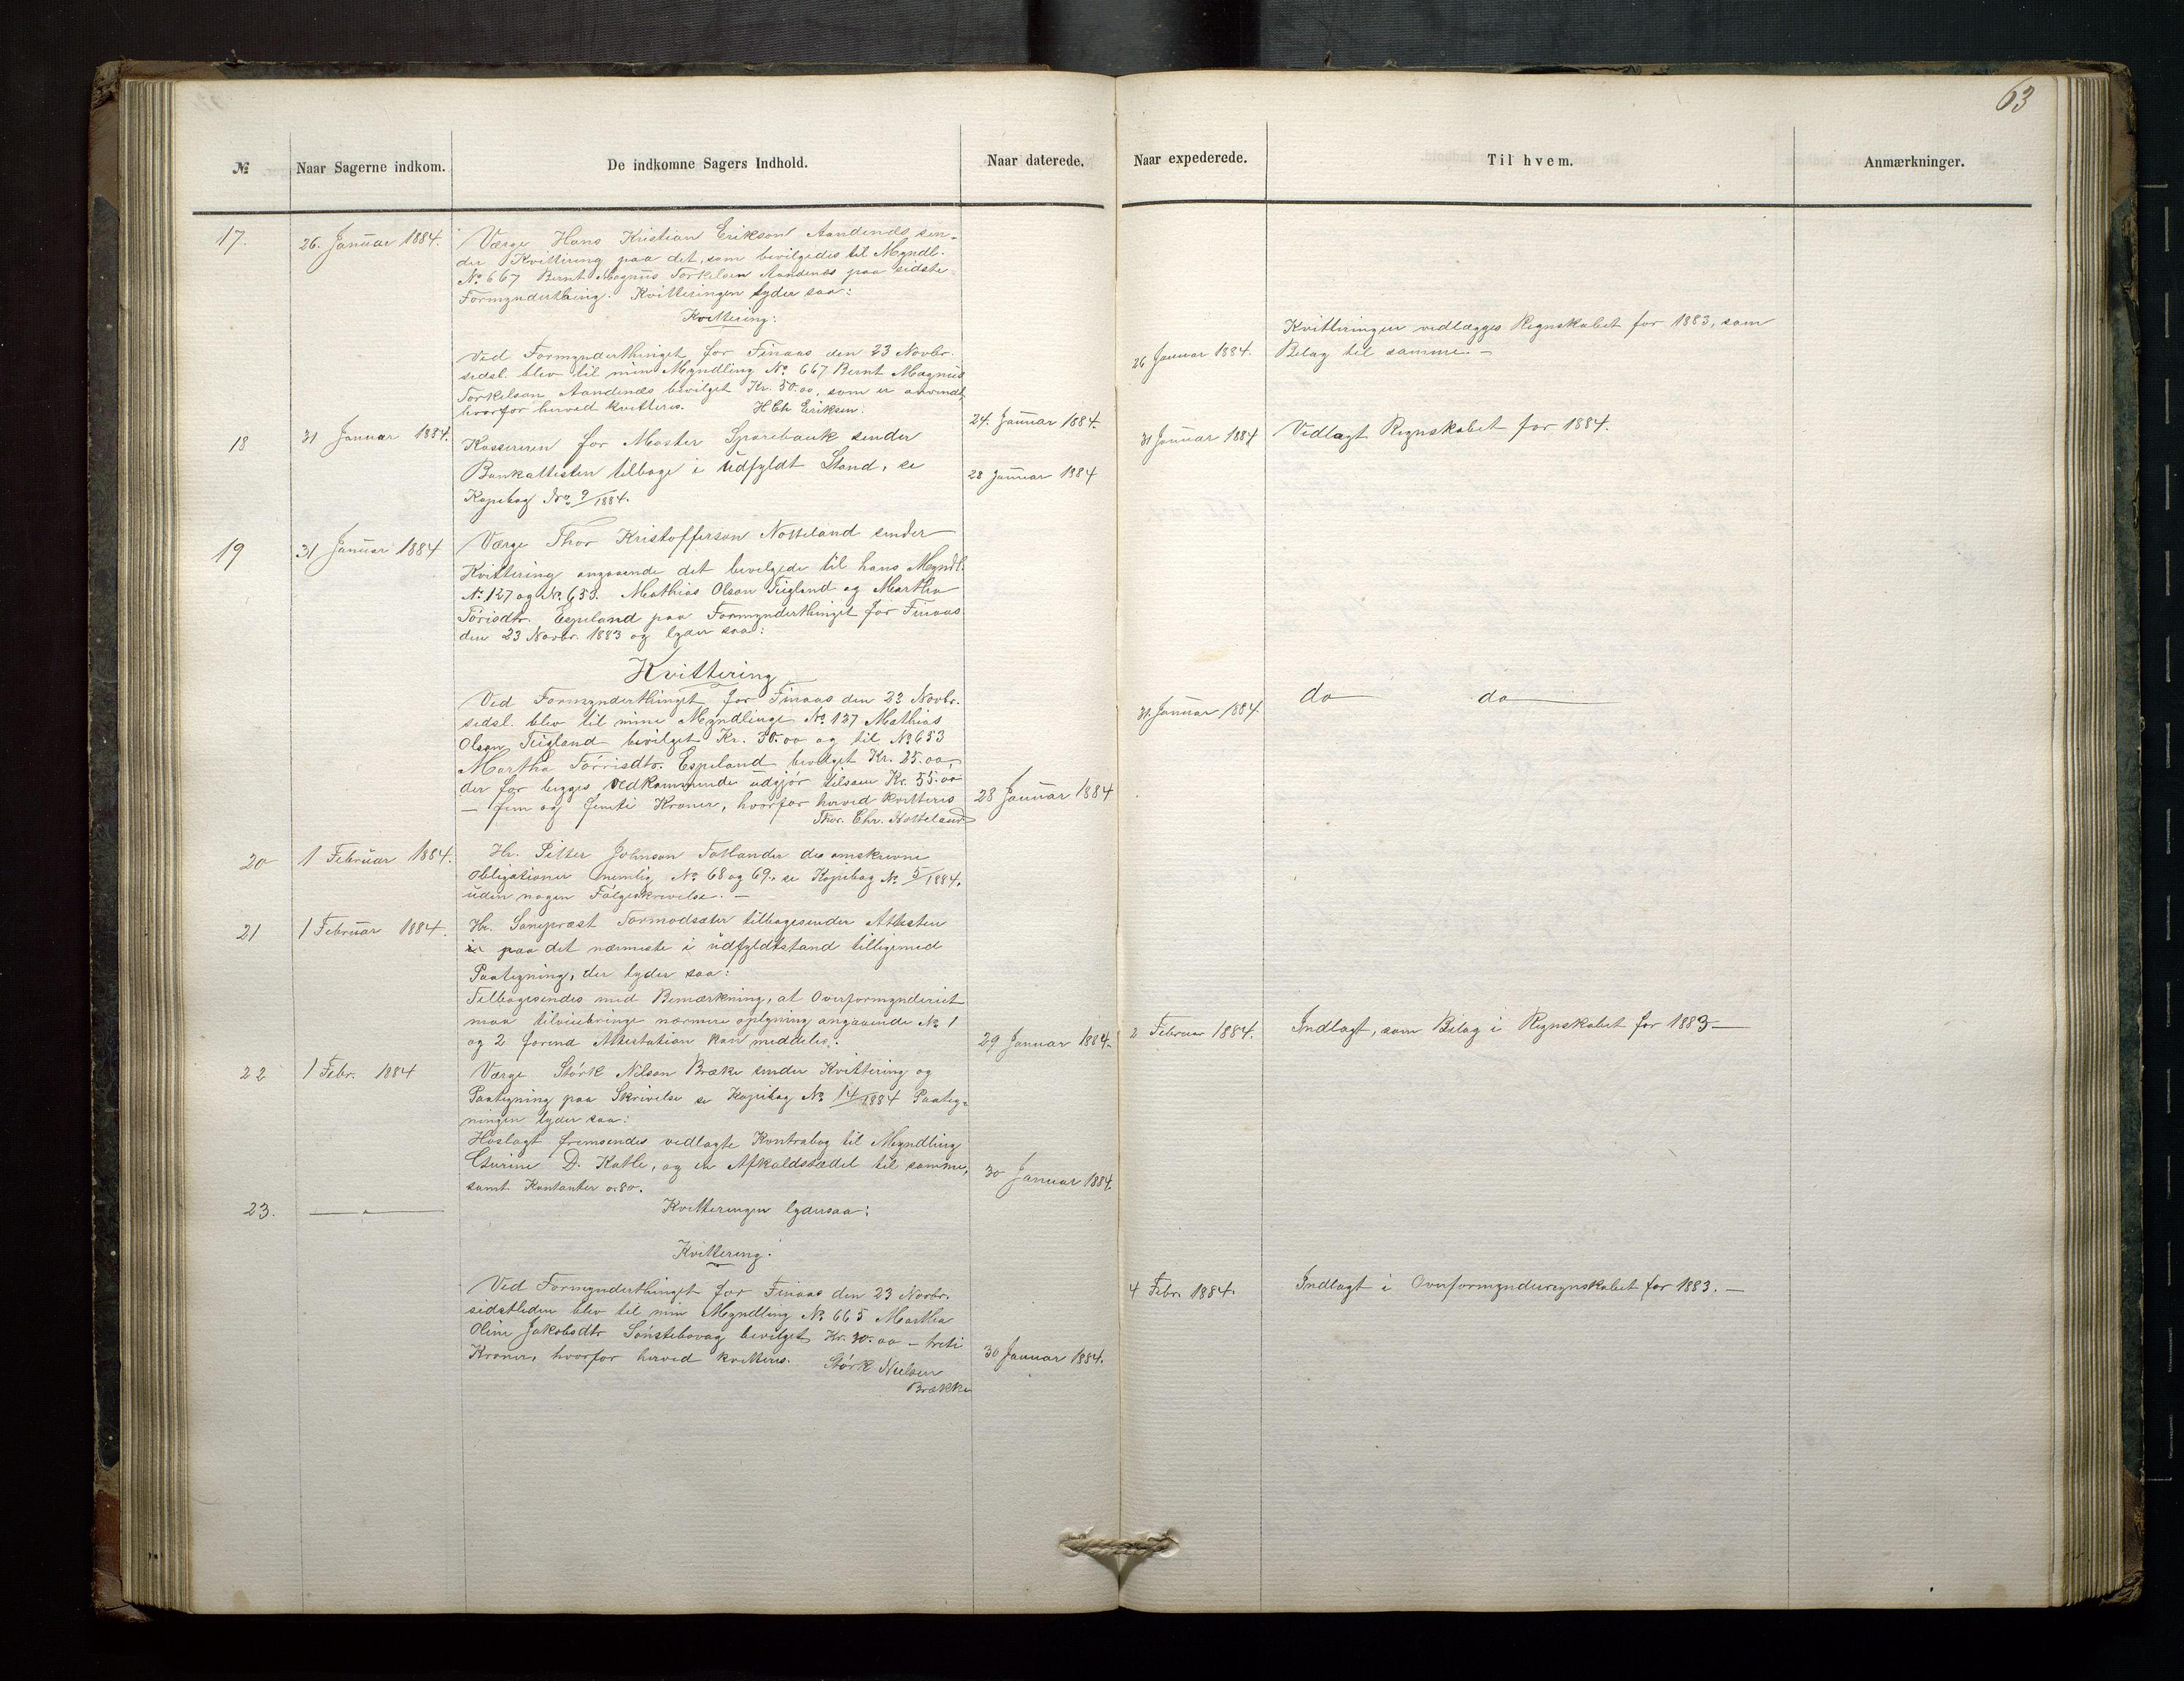 63
№
Naar Sagerne indkom.
De indkomne Sagers Indhold.
Naar daterede.
Naar expederede.
Til hvem.
Anmærkninger.
17.
26. Januar 1884.
Værge Hans Kristian Erikson Aandenæs sen-
der Kvittering paa det, som bevilgedes til Myndl.
No 667 Bernt Magnus Torkelsen Aandenæs paa sidste
Formynderthing. Kvitteringen lyder saa:
Kvittering:
Ved Formynderthinget for Finaas den 23 Novbr.
sidsl. blev til min Myndling No 667 Bernt Magnus
Torkelson Aandenæs bevilget Kr. 50.00, som er anvendt,
hvorfor herved kvitteres. H Chr Eriksen.
24. Januar 1884.
26 Januar 1884.
Kvitteringen vedlægges Regnskabet for 1883, som
Bilag til samme. –
18
31 Januar 1884.
Kassereren for Moster Sparebank sender
Bankattesten tilbage i udfyldt Stand, se
Kopibog No 9/1884.
28 Januar 1884
31 Januar 1884
Vedlagt Regnskabet for 1884.
19
31 Januar 1884
Værge Thor Kristofferson Notteland sender
Kvittering angaaende det bevilgede til hans Myndl.
No 127 og No 653. Mathias Olson Teigland og Martha
Tórisdtr. Espeland paa Formynderthinget for Finaas
den 23 Novbr. 1883 og lyder saa:
Kvittering
Ved Formynderthinget for Finaas den 23 Novbr.
sidsl. blev til mine Myndlinge No 127 Mathias
Olson Teigland bevilget Kr. 30.00 og til No 653
Martha Tórrisdtr. Espeland bevilget Kr. 25.00,
der for begges vedkommende udgjór tilsam Kr. 55.00
– fem og femti Kroner, hvorfor herved kvitteres
Thor. Chr. Notteland
28 Januar 1884
31. Januar 1884.
do do
20
1 Februar 1884.
Hr. Pitter Johnson Totlander de omskrevne
Obligationer nemlig No 68 og 69, se Kopibog No 5/1884.
uden nogen Fólgeskrivelse. –
21
1 Februar 1884.
Hr. Sognepræst Tormodsæter tilbagesender Attesten
paa det nærmeste i udfyldtstand tilligemed
Paategning, der lyder saa:
Tilbagesendes med Bemærkning, at Overformynderiet
maa tilveiebringe nærmere oplysning angaaende No 1
og 2 forend Attestation kan meddeles.
29 Januar 1884.
2 Februar 1884.
Indlagt, som Bilag i Regnskabet for 1883 –
22
1 Febr. 1884
Værge Stórk Nilson Brække sender Kvittering og
Paategning paa Skrivelse se Kopibog No 14/1884 Paateg-
ningen lyder saa:
Hoslagt fremsendes vedlagte Kontrabog til Myndling
D. Katle, og en Afkaldssedel til samme,
samt Kontanter 0.80.
30 Januar 1884.
23.
Kvitteringen lydersaa:
Kvittering.
Ved Formynderthinget for Finaas den 23 Novbr.
sidstleden blev til min Myndling No 665 Martha
Oline Jakobsdtr Sónstebovag bevilget Kr. 30.00 – treti
Kroner, hvorfor herved kvitteres. Stórk Nielsen
Brække
30 Januar 1884.
4 Febr. 1884.
Indlagt i Overformynderregnskabet for 1883. –